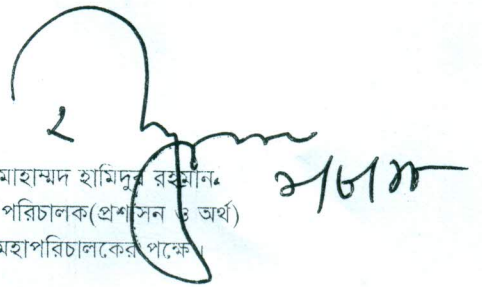 মোহাম্মদ হামিদুর রহমান
পরিচালক(প্রশাসন ও অর্থ)
মহাপরিচালকের পক্ষে।